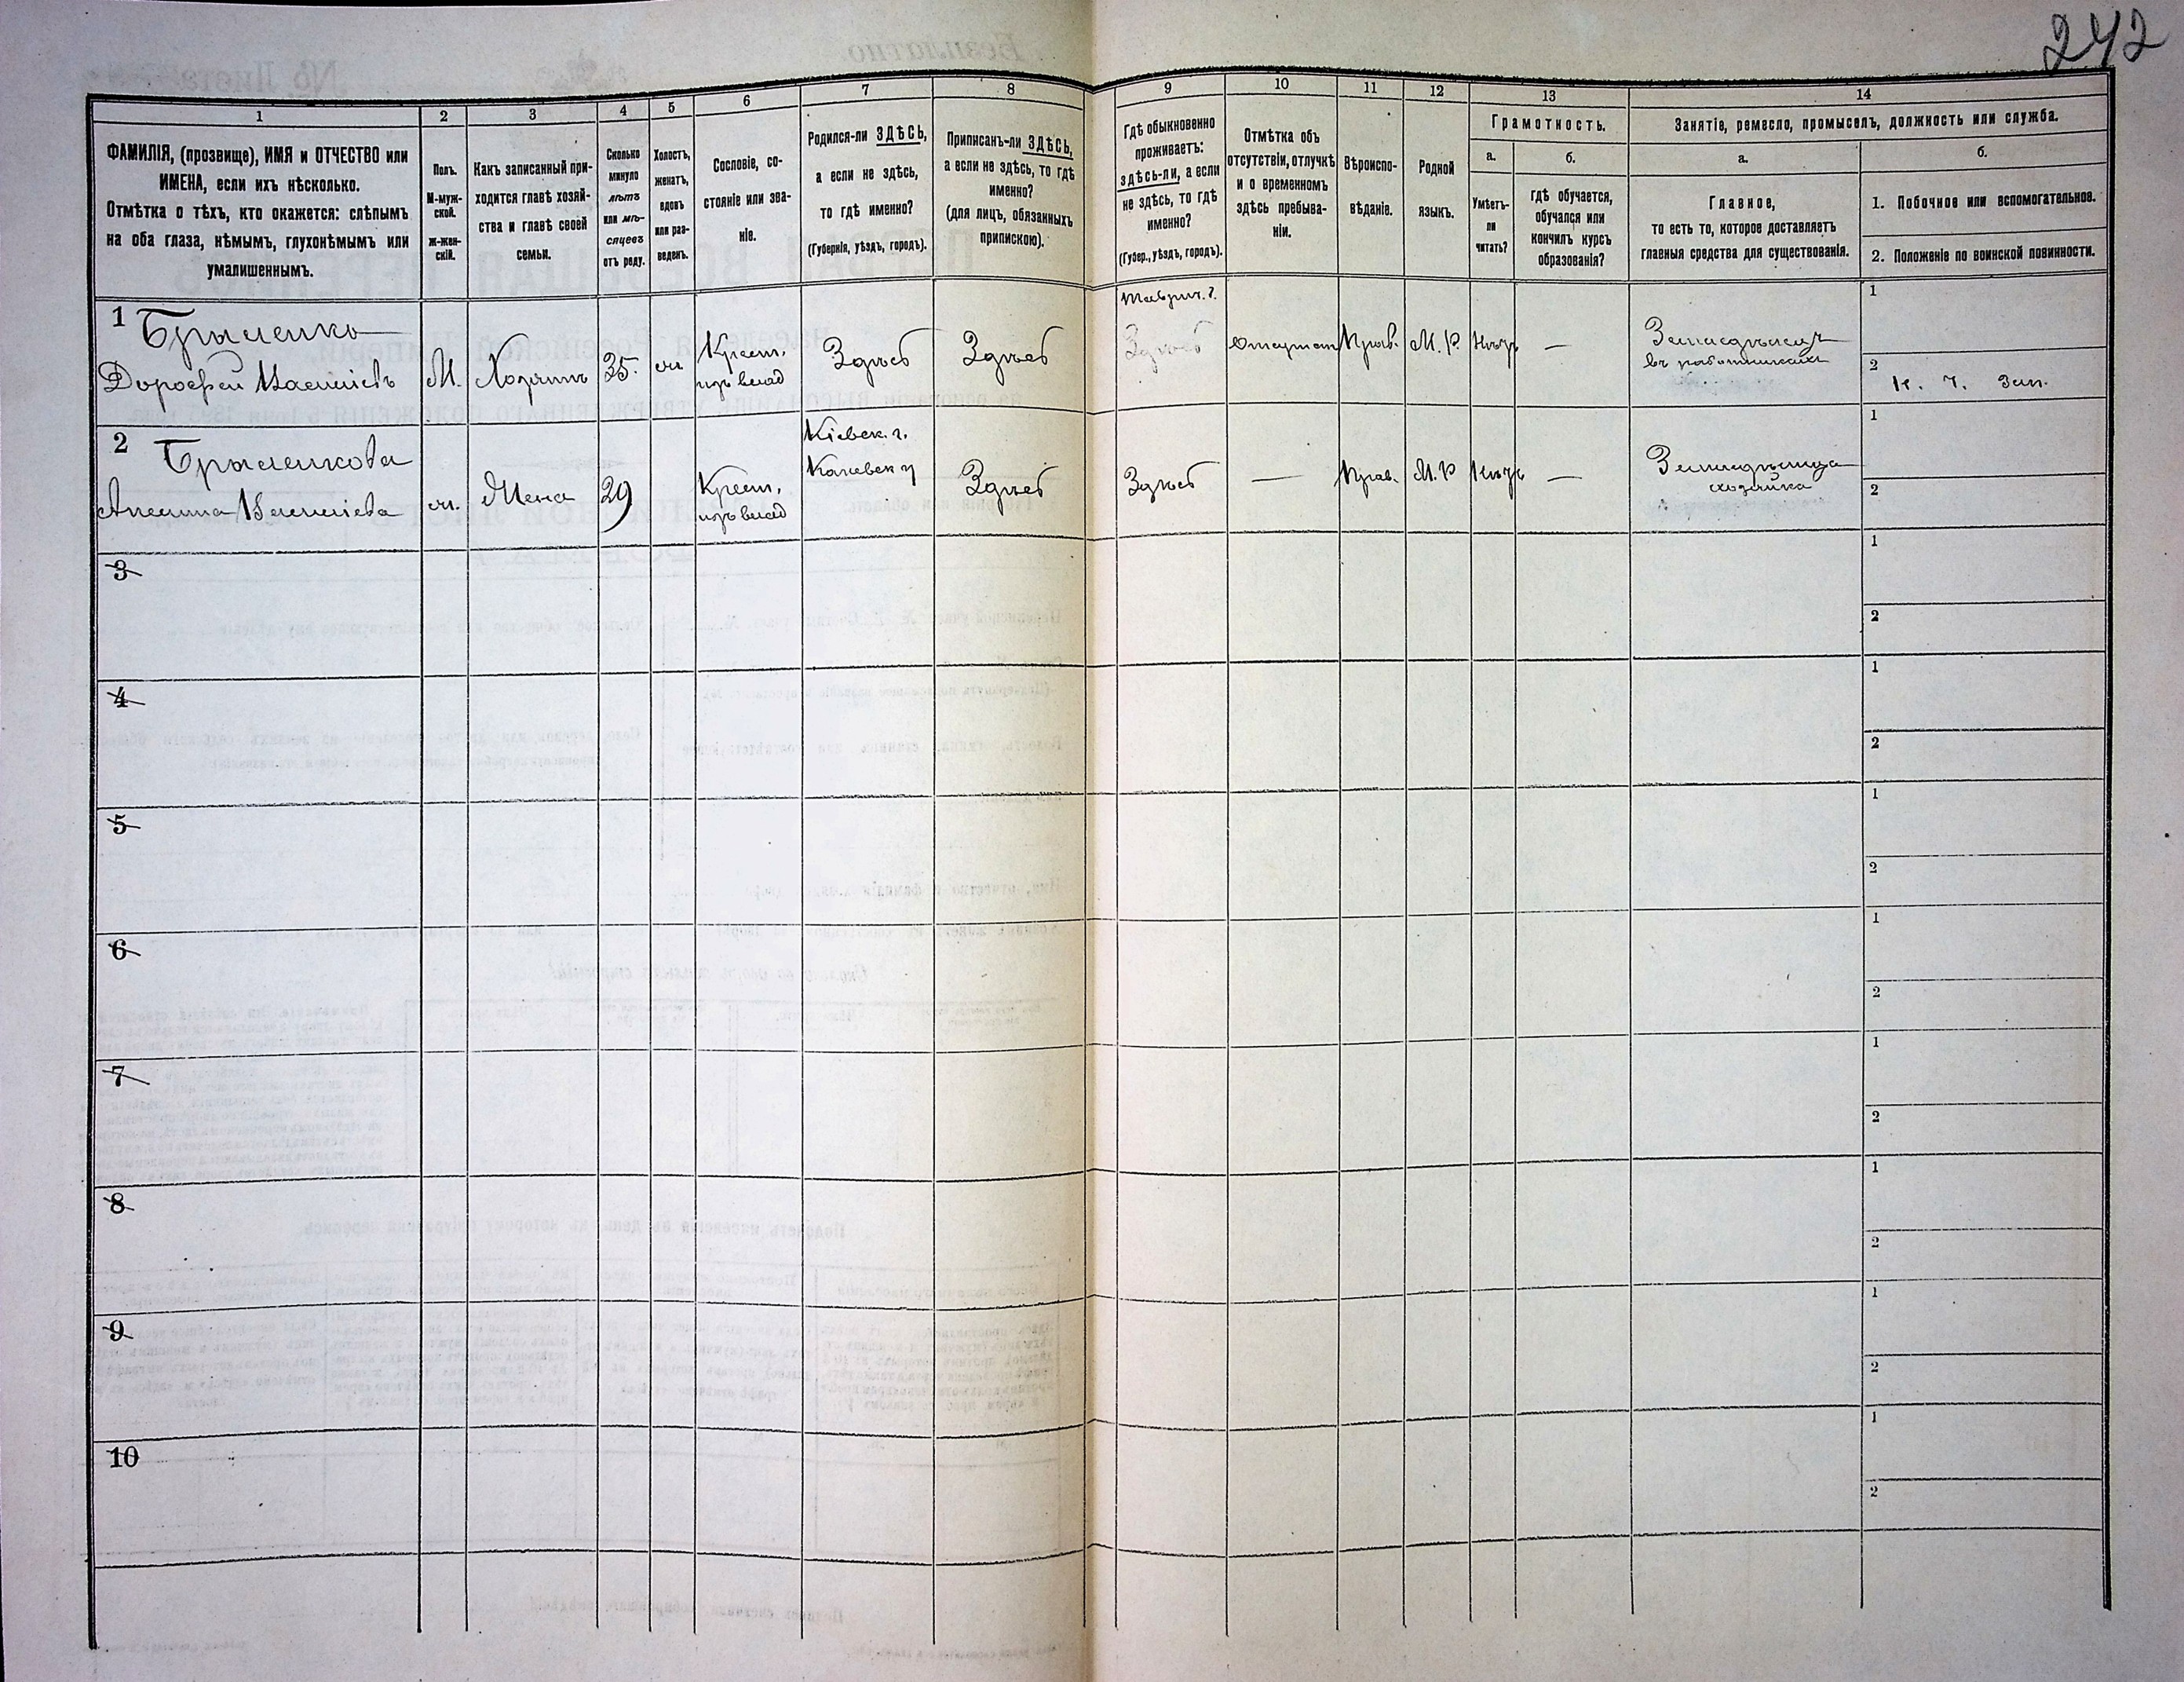 242
1
2
3
4
5
6
7
8
9
10
11
12
13
14
ФАМИЛІЯ, (прозвище), ИМЯ и ОТЧЕСТВО или
ИМЕНА, если ихъ нѣсколько.
Отмѣтка о тѣхъ, кто окажется: слѣпымъ
на оба глаза, нѣмымъ, глухонѣмымъ или
умалишеннымъ.
Полъ.
М-муж-
ской.
ж-жен-
скій.
Какъ записанный при-
ходится главѣ хозяй-
ства и главѣ своей
семьи.
Сколько
минуло
лѣтъ
или мѣ-
сяцевъ
отъ роду.
Холостъ,
женатъ,
вдовъ
или раз-
веденъ.
Сословіе, со-
стояніе или зва-
ніе.
Родился-ли ЗДѢСЬ,
а если не здѣсь,
то гдѣ именно?
(Губернія, уѣздъ, городъ).
Приписанъ-ли ЗДѢСЬ,
а если не здѣсь, то гдѣ
именно?
(для лицъ, обязанныхъ
припискою).
Гдѣ обыкновенно
проживаетъ:
здѣсь-ли, а если
не здѣсь, то гдѣ
именно?
(Губер., уѣздъ, городъ).
Отмѣтка объ
отсутствіи, отлучкѣ
и о временномъ
здѣсь пребыва-
ніи.
Вѣроиспо-
вѣданіе.
Родной
языкъ.
Грамотность.
а.
Умѣетъ-
ли
читать?
б.
гдѣ обучается,
обучался или
кончилъ курсъ
образованія?
Занятіе, ремесло, промыселъ, должность или служба.
а.
Главное,
то есть то, которое доставляетъ
главныя средства для существованія.
б.
1. Побочное или вспомогательное.
2. Положеніе по воинской повинности.
1
Дорофей
М.
Хозяинъ
35
Крест.
изъ влад
Здѣсь
Здѣсь
Таврич. г.
Здѣсь
Прав.
М. Р.
Нѣтъ
—
Земледѣлецъ
въ работникахъ
1
2
2
ж.
Жена
29
Крест.
изъ влад
Кіевск. г.
Каневск у
Здѣсь
Здѣсь
—
Прав.
М. Р
Нѣтъ
—
хозяйка
1
2
3
1
2
4
1
2
5
1
2
6
1
2
7
1
2
8
1
2
9
1
2
10
1
2